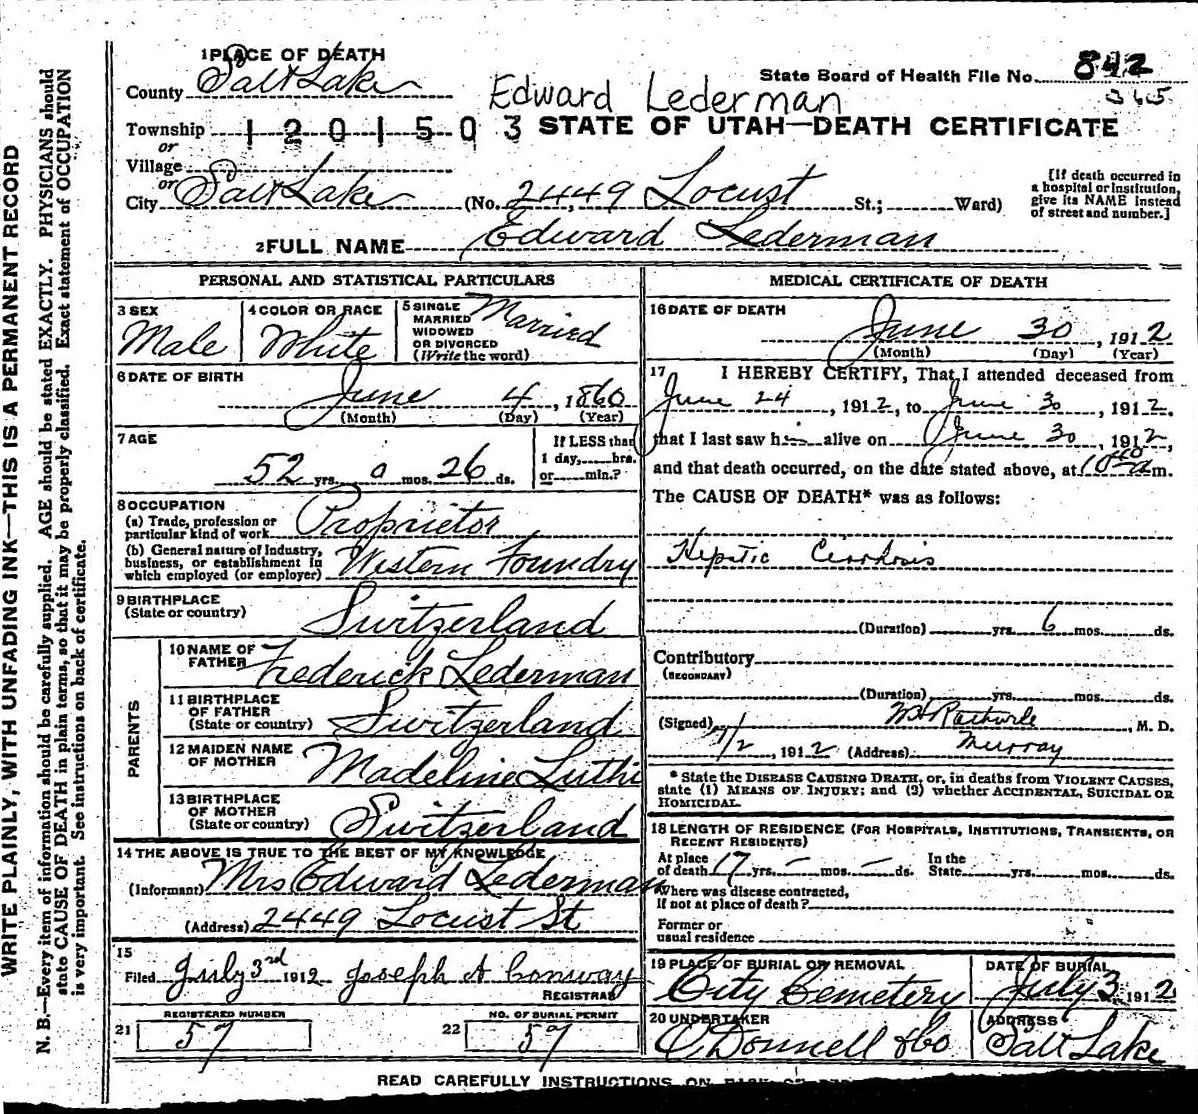 WRITE PLAINLY, WITH UNFADING INK—THIS IS A PERMANENT RECORD
N. B.—Every item of information should be carefully supplied. AGE should be stated EXACTLY. PHYSICIANS should
state CAUSE OF DEATH in plain terms, so that it may be properly classified. Exact statement of OCCUPATION
is very important. See instructions on back of certificate.
1 PLACE OF DEATH
County Salt Lake
State Board of Health File No. 842
365
Edward Lederman
Township 1201503
STATE OF UTAH—DEATH CERTIFICATE
or
Village
or
City Salt Lake (No. 2449 Locust St.; Ward)
[If death occurred in
a hospital or institution,
give its NAME instead
of street and number.]
2 FULL NAME Edward Lederman
PERSONAL AND STATISTICAL PARTICULARS
3 SEX
Male
4 COLOR OR RACE
White
5 SINGLE
MARRIED
WIDOWED
OR DIVORCED
(Write the word)
Married
6 DATE OF BIRTH
June 4, 1860
(Month) (Day) (Year)
7 AGE
52 yrs. 0 mos. 26 ds.
If LESS than
1 day, hrs.
or min.?
8 OCCUPATION
(a) Trade, profession or
particular kind of work Proprietor
(b) General nature of Industry,
business, or establishment in
which employed (or employer) Western Foundry
9 BIRTHPLACE
(State or country) Switzerland
PARENTS
10 NAME OF
FATHER Frederick Lederman
11 BIRTHPLACE
OF FATHER
(State or country) Switzerland
12 MAIDEN NAME
OF MOTHER Madeline Luthi
13 BIRTHPLACE
OF MOTHER
(State or country) Switzerland
14 THE ABOVE IS TRUE TO THE BEST OF MY KNOWLEDGE
(Informant) Mrs Edward Lederman
(Address) 2449 Locust St
15
Filed July 3rd 1912 Joseph A Conway
REGISTRAR
REGISTERED NUMBER
21 57
NO. OF BURIAL PERMIT
22 57
MEDICAL CERTIFICATE OF DEATH
16 DATE OF DEATH
June 30, 1912
(Month) (Day) (Year)
17 I HEREBY CERTIFY, That I attended deceased from
June 24, 1912, to June 30, 1912.
that I last saw him alive on June 30, 1912,
and that death occurred, on the date stated above, at 10 40 a m.
The CAUSE OF DEATH* was as follows:
Hepatic Cirrhosis
(Duration) yrs. 6 mos. ds.
Contributory
(SECONDARY)
(Duration) yrs. mos. ds.
(Signed) M. D.
7/2, 1912 (Address) Murray
* State the DISEASE CAUSING DEATH, or, in deaths from VIOLENT CAUSES,
state (1) MEANS OF INJURY; and (2) whether ACCIDENTAL, SUICIDAL OR
HOMICIDAL.
18 LENGTH OF RESIDENCE (FOR HOSPITALS, INSTITUTIONS, TRANSIENTS, OR
RECENT RESIDENTS)
At place
of death 17 yrs. – mos. – ds.
In the
State yrs. mos. ds.
Where was disease contracted,
If not at place of death?
Former or
usual residence
19 PLACE OF BURIAL OR REMOVAL
City Cemetery
DATE OF BURIAL
July 3 1912
20 UNDERTAKER
O'Donnell & Co
ADDRESS
Salt Lake
READ CAREFULLY INSTRUCTIONS ON BACK OF